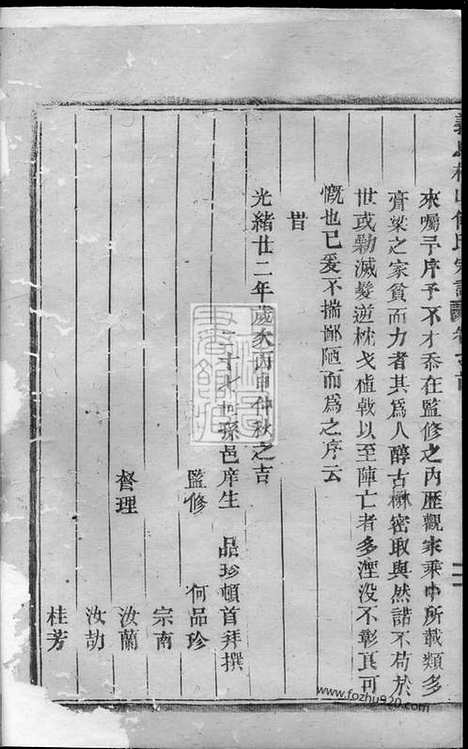 來囑予序予不才忝在監修之內歷觀家乘中所載類多
膏粱之家貧而力者其為人醇古縝密取與然諾不苟於
世或勦滅髮逆枕戈植戟以至陣亡者多湮沒不彰真可
慨也已爰不揣鄙陋而為之序云
旹
光緒廿二年歲次丙申仲秋之吉
二十七世孫邑庠生 品珍頓首拜撰
監修 何品珍
宗南
督理 汝蘭
汝劼
桂芳
www.fozhu920.com